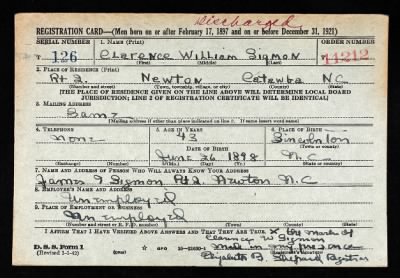 Discharged
REGISTRATION CARD—(Men born on or after February 17, 1897 and on or before December 31, 1921)
SERIAL NUMBER 1. NAME (Print) ORDER NUMBER
T 126 Clarence William Sigmon 11212
(First) (Middle) (Last)
2. PLACE OF RESIDENCE (Print)
Rt 2. Newton Catawba N.C.
(Number and street) (Town, township, village, or city) (County) (State)
[THE PLACE OF RESIDENCE GIVEN ON THE LINE ABOVE WILL DETERMINE LOCAL BOARD
JURISDICTION; LINE 2 OF REGISTRATION CERTIFICATE WILL BE IDENTICAL]
3. MAILING ADDRESS
Same
[Mailing address if other than place indicated on line 2. If same insert word same]
4. TELEPHONE 5. AGE IN YEARS 6. PLACE OF BIRTH
none 43 Lincolnton
DATE OF BIRTH (Town or county)
June 26 1898 N.C.
(Exchange) (Number) (Mo.) (Day) (Yr.) (State or country)
7. NAME AND ADDRESS OF PERSON WHO WILL ALWAYS KNOW YOUR ADDRESS
James Sigmon Rt 2. Newton N.C
8. EMPLOYER'S NAME AND ADDRESS
Unemployed
9. PLACE OF EMPLOYMENT OR BUSINESS
Unemployed
(Number and street or R. F. D. number) (Town)
I AFFIRM THAT I HAVE VERIFIED ABOVE ANSWERS AND THAT THEY ARE TRUE. X his mark of
Clarence W. Sigmon
D. S. S. Form 1 GPO made in my presence
(Revised 1-1-42) Elizabeth B. Shuford